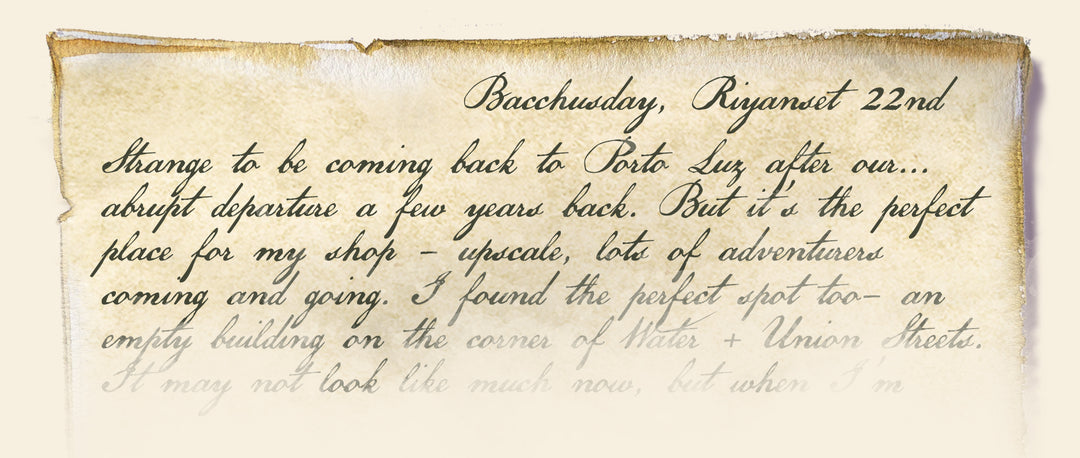 Bacchusday, Riyanset 22nd
Strange to be coming back to Porto Luz after our...
abrupt departure a few years back. But it's the perfect
place for my shop - upscale, lots of adventurers
coming and going. I found the perfect spot too- an
empty building on the corner of Water + Union Streets.
It may not look like much now, but when I'm